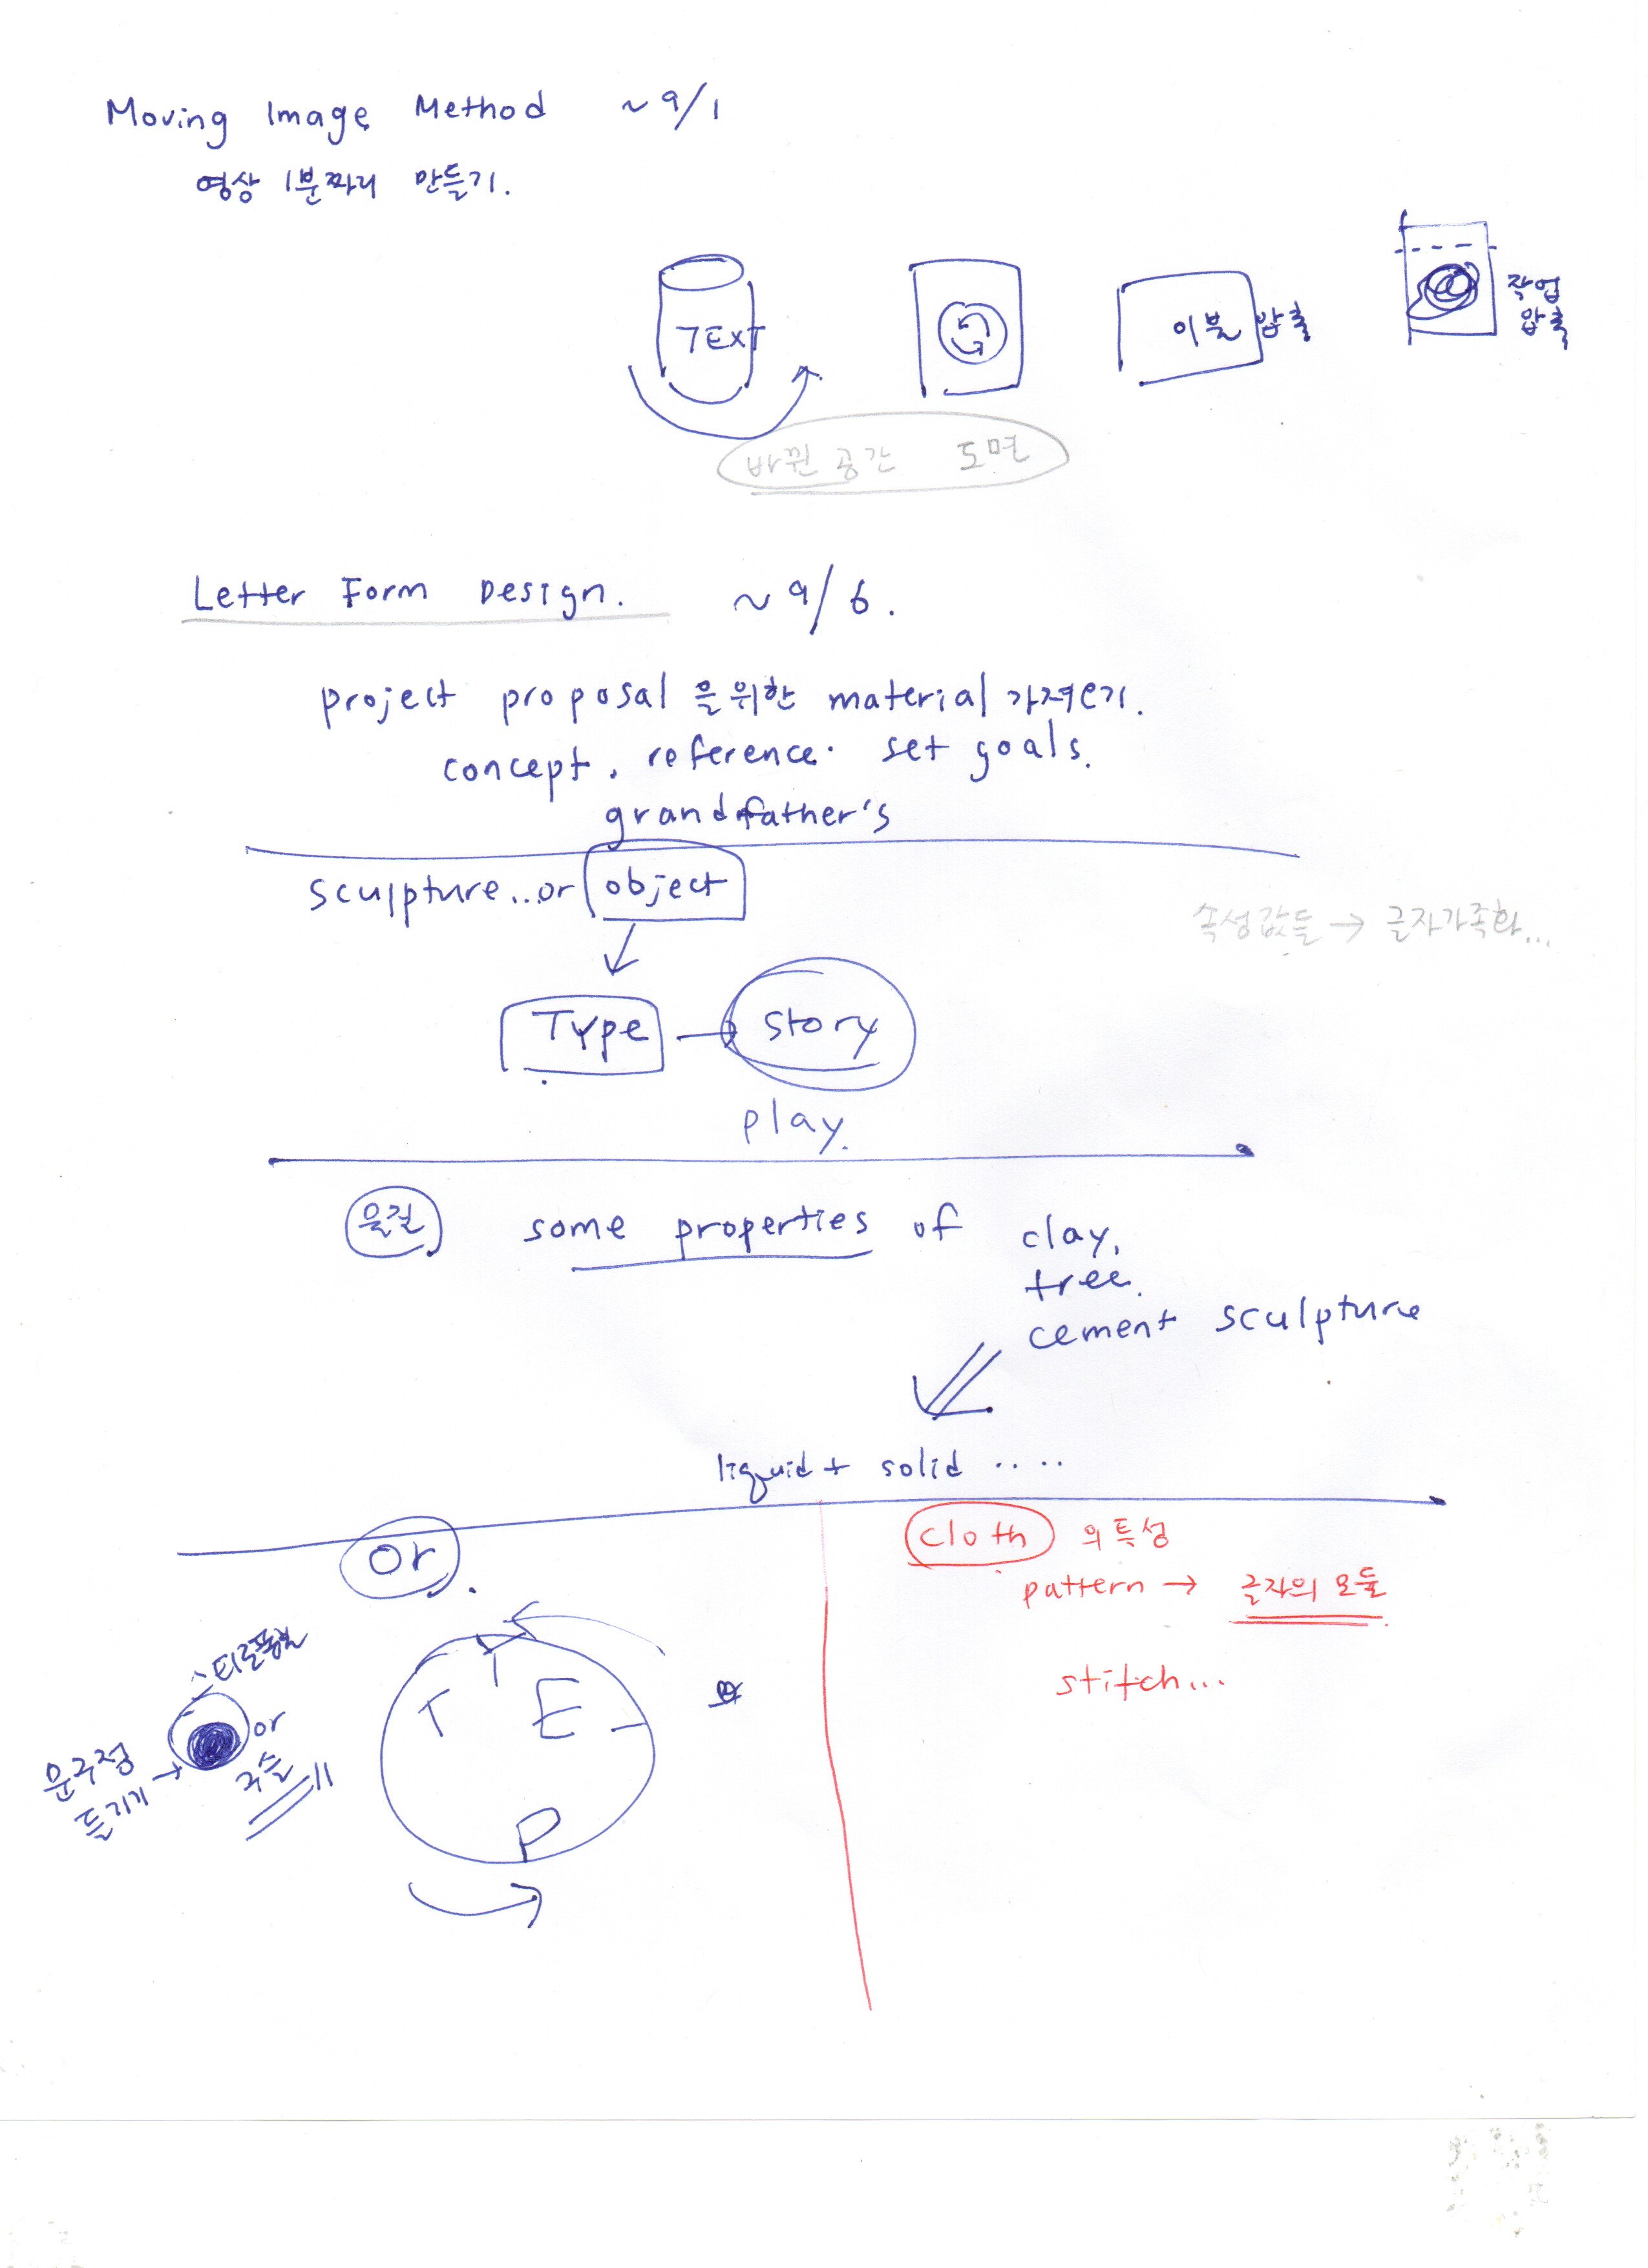 Moving Image Method ~9/1
영상 1분짜리 만들기.
TEXT
이불 압축
작업
압축
바뀐 공간 도면
Letter Form Design. ~9/6.
project proposal 을위한 material 가져오기.
concept, reference. set goals.
grandfather's
sculpture...or object
속성값들 → 글자가족화...
Type → story
play.
some properties of clay,
tree.
cement sculpture
liquid + solid .....
or
cloth 의 특성
pattern → 글자의 모듈
stitch...
스티로폼볼
or
구슬
문구점
들기기 →
T Y E
P